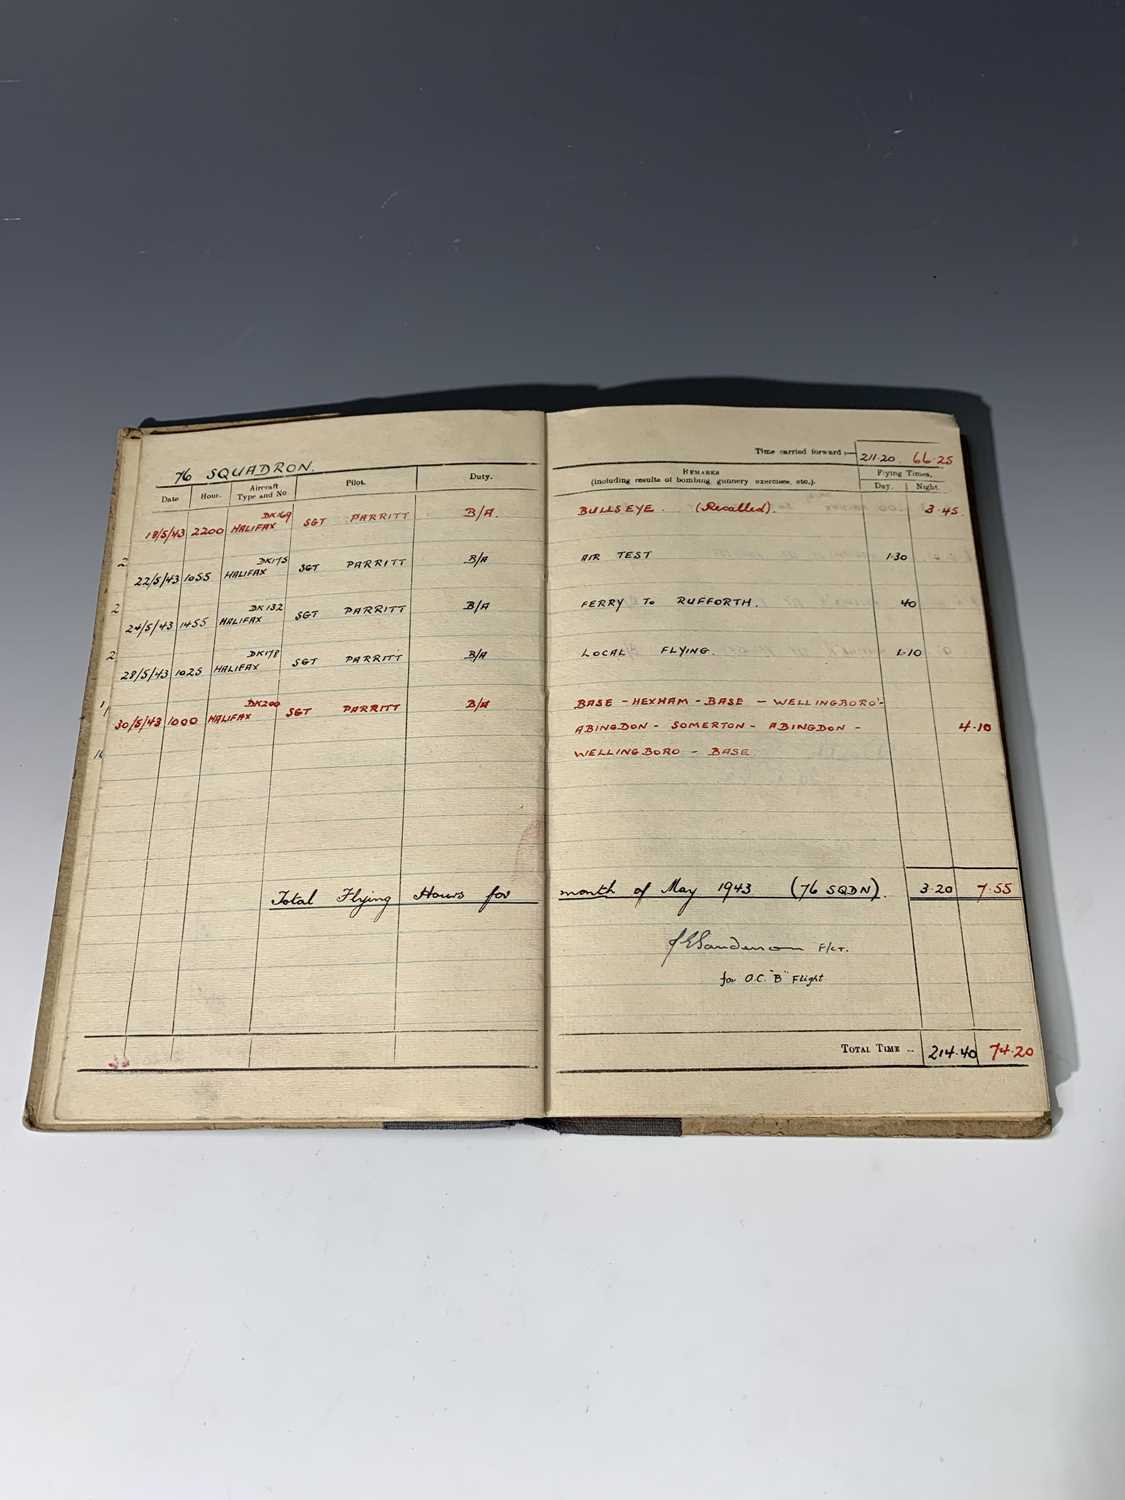 76 SQUADRON.
Date Hour. Aircraft Type and No. Pilot. Duty.
Time carried forward :— 211·20 66·25
REMARKS
(including results of bombing, gunnery, exercises, etc.).
Flying Times.
Day. Night.
18/5/43 2200 HALIFAX DK169 SGT PARRITT B/A. BULLSEYE. (Recalled). 3·45.
22/5/43 1055 HALIFAX DK175 SGT PARRITT B/A AIR TEST 1·30
24/5/43 1455 HALIFAX DK132 SGT PARRITT B/A FERRY TO RUFFORTH. 40
28/5/43 1025 HALIFAX DK178 SGT PARRITT B/A LOCAL FLYING. 1·10
30/5/43 1000 HALIFAX DK200 SGT PARRITT B/A BASE - HEXHAM - BASE - WELLINGBORO' -
ABINGDON - SOMERTON - ABINGDON - 4·10
WELLINGBORO - BASE
Total Flying Hours for month of May 1943 (76 SQDN). 3·20 7·55
F/LT.
for O.C. "B" Flight
TOTAL TIME .. 214·40 74·20